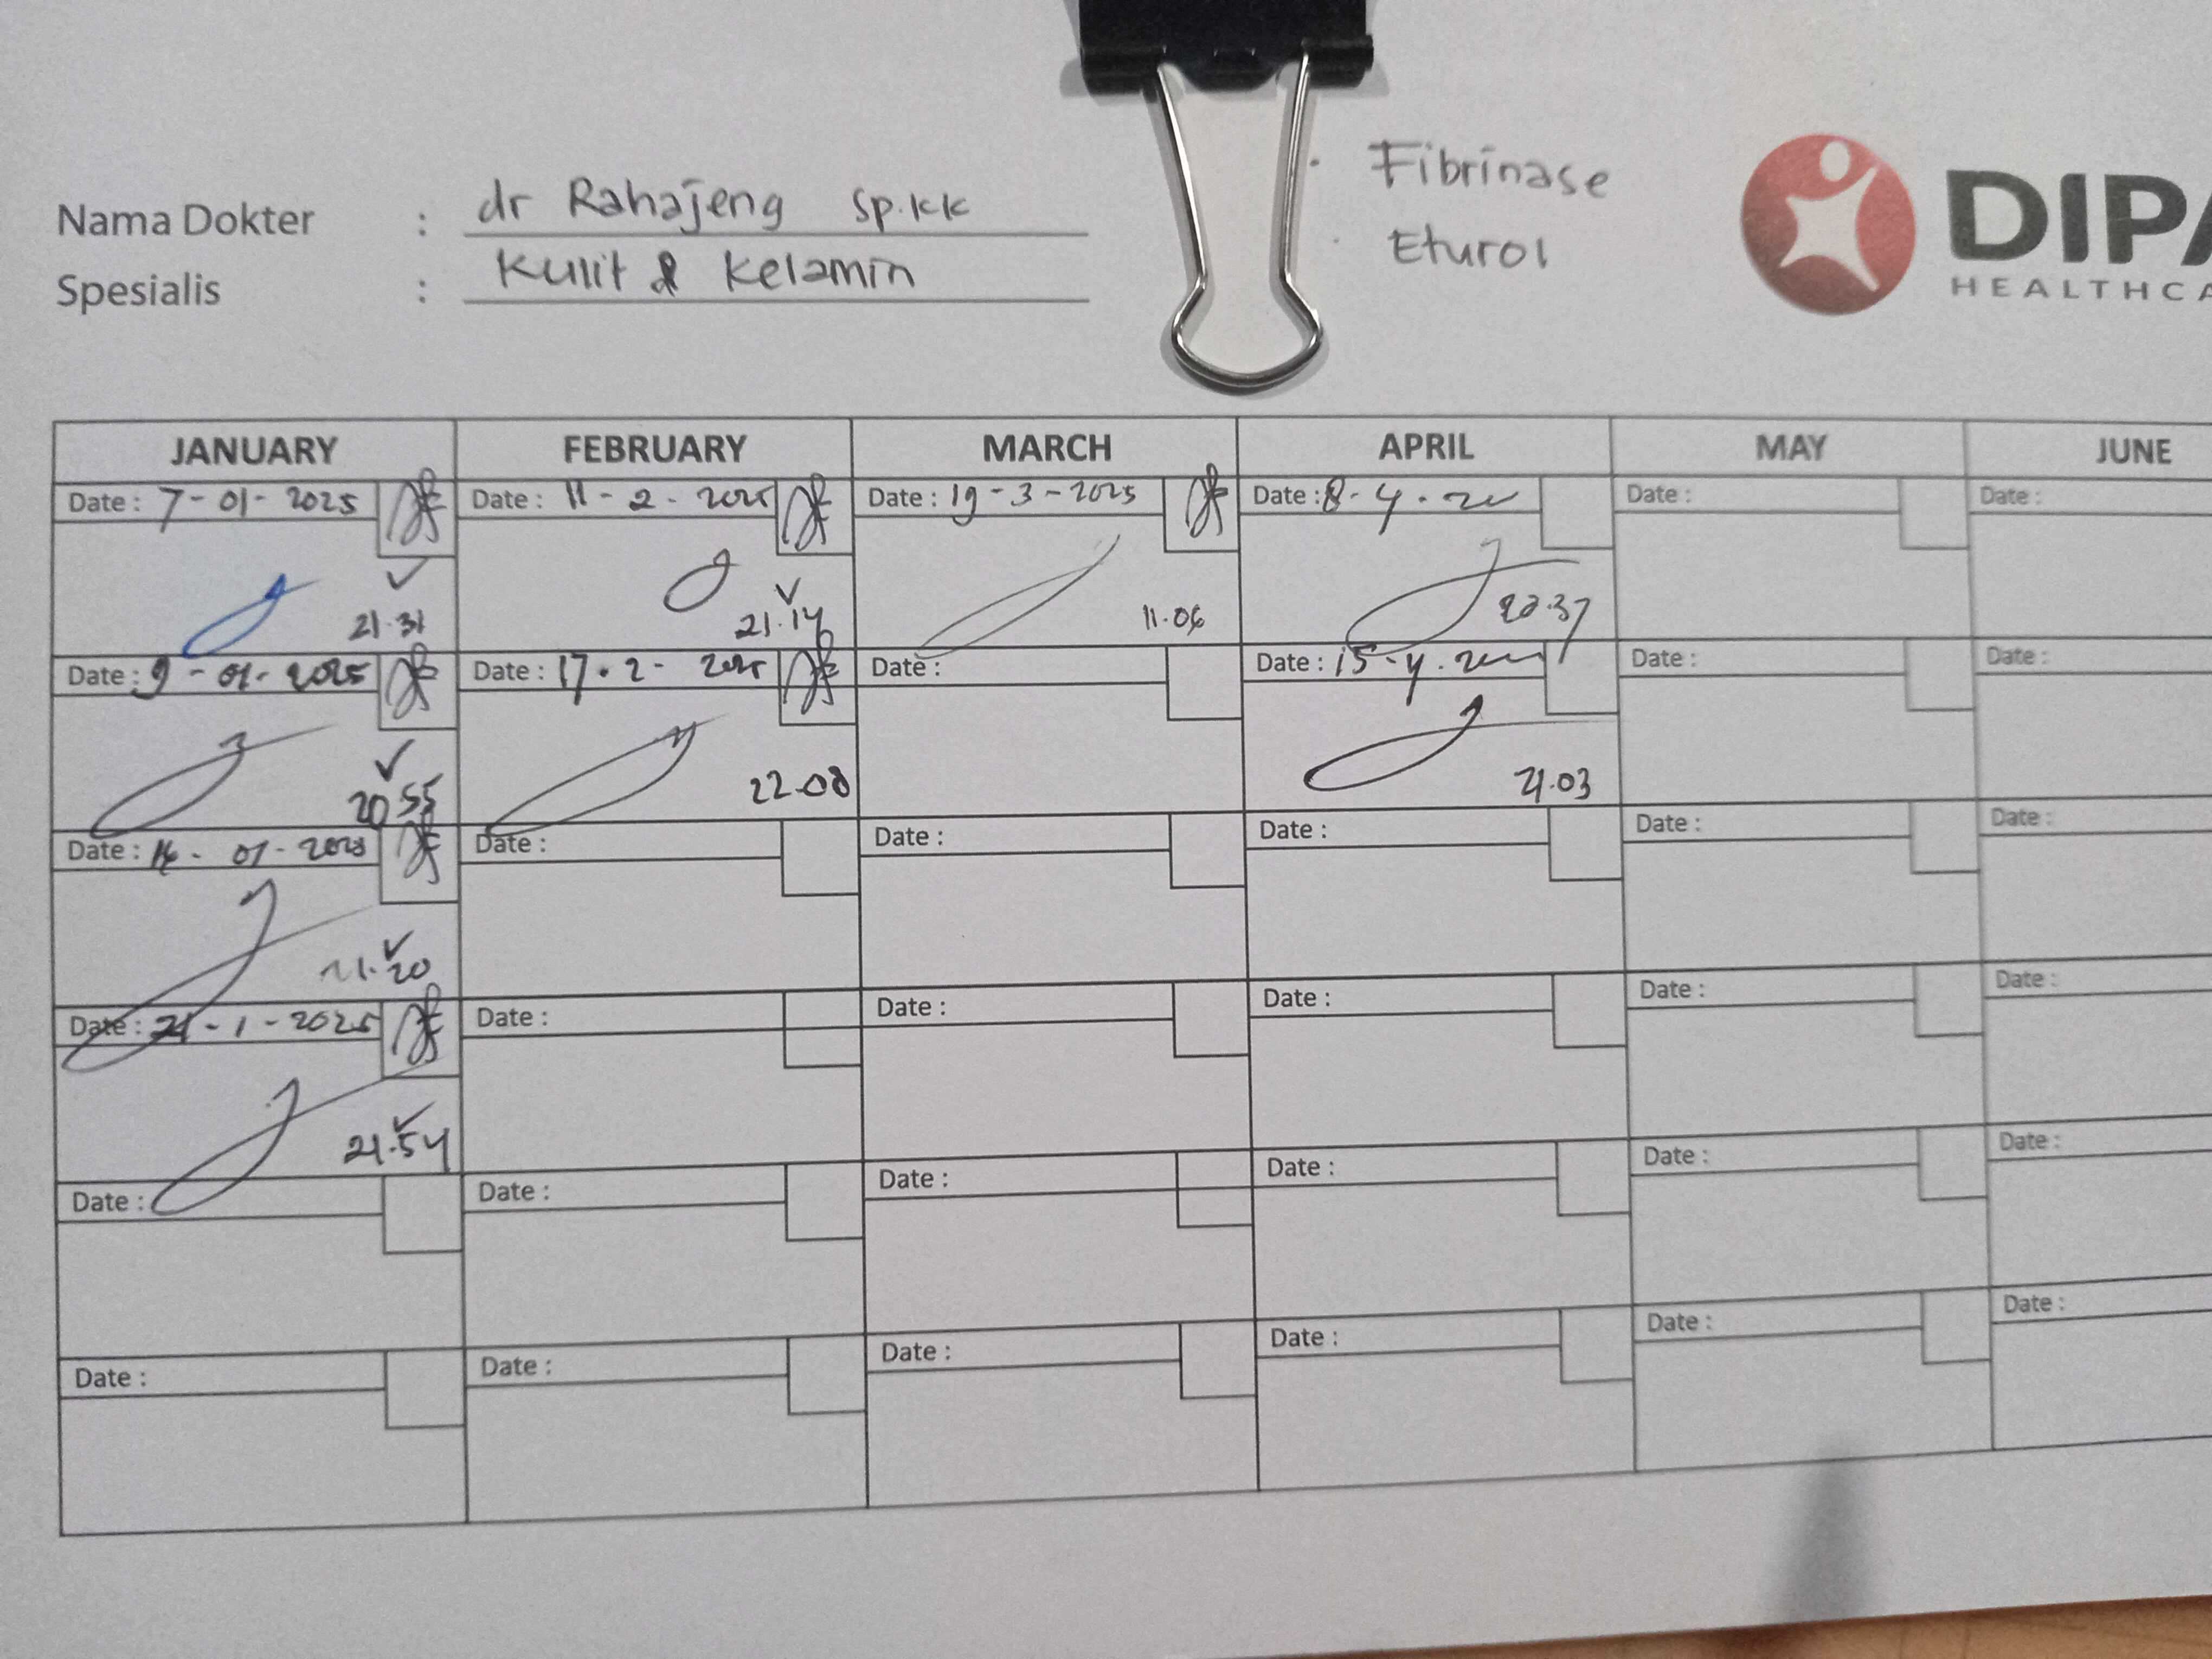 Fibrinase
Eturol
Nama Dokter : dr Rahajeng Sp.KK
Spesialis : Kulit & Kelamin
DIPA
HEALTHCA
JANUARY FEBRUARY MARCH APRIL MAY JUNE
Date : 7-01-2025 Date : 11-2-2025 Date : 19-3-2025 Date : 8-4- Date : Date :
21.31 21.14 11.06
Date : 9-01-2025 Date : 17.2-2025 Date : Date : 15-4. Date : Date :
20.55 22.00 21.03
Date : 01- Date : Date : Date : Date : Date :
21.20
Date : 21-1-2025 Date : Date : Date : Date : Date :
21.54
Date : Date : Date : Date : Date : Date :
Date : Date : Date : Date : Date : Date :